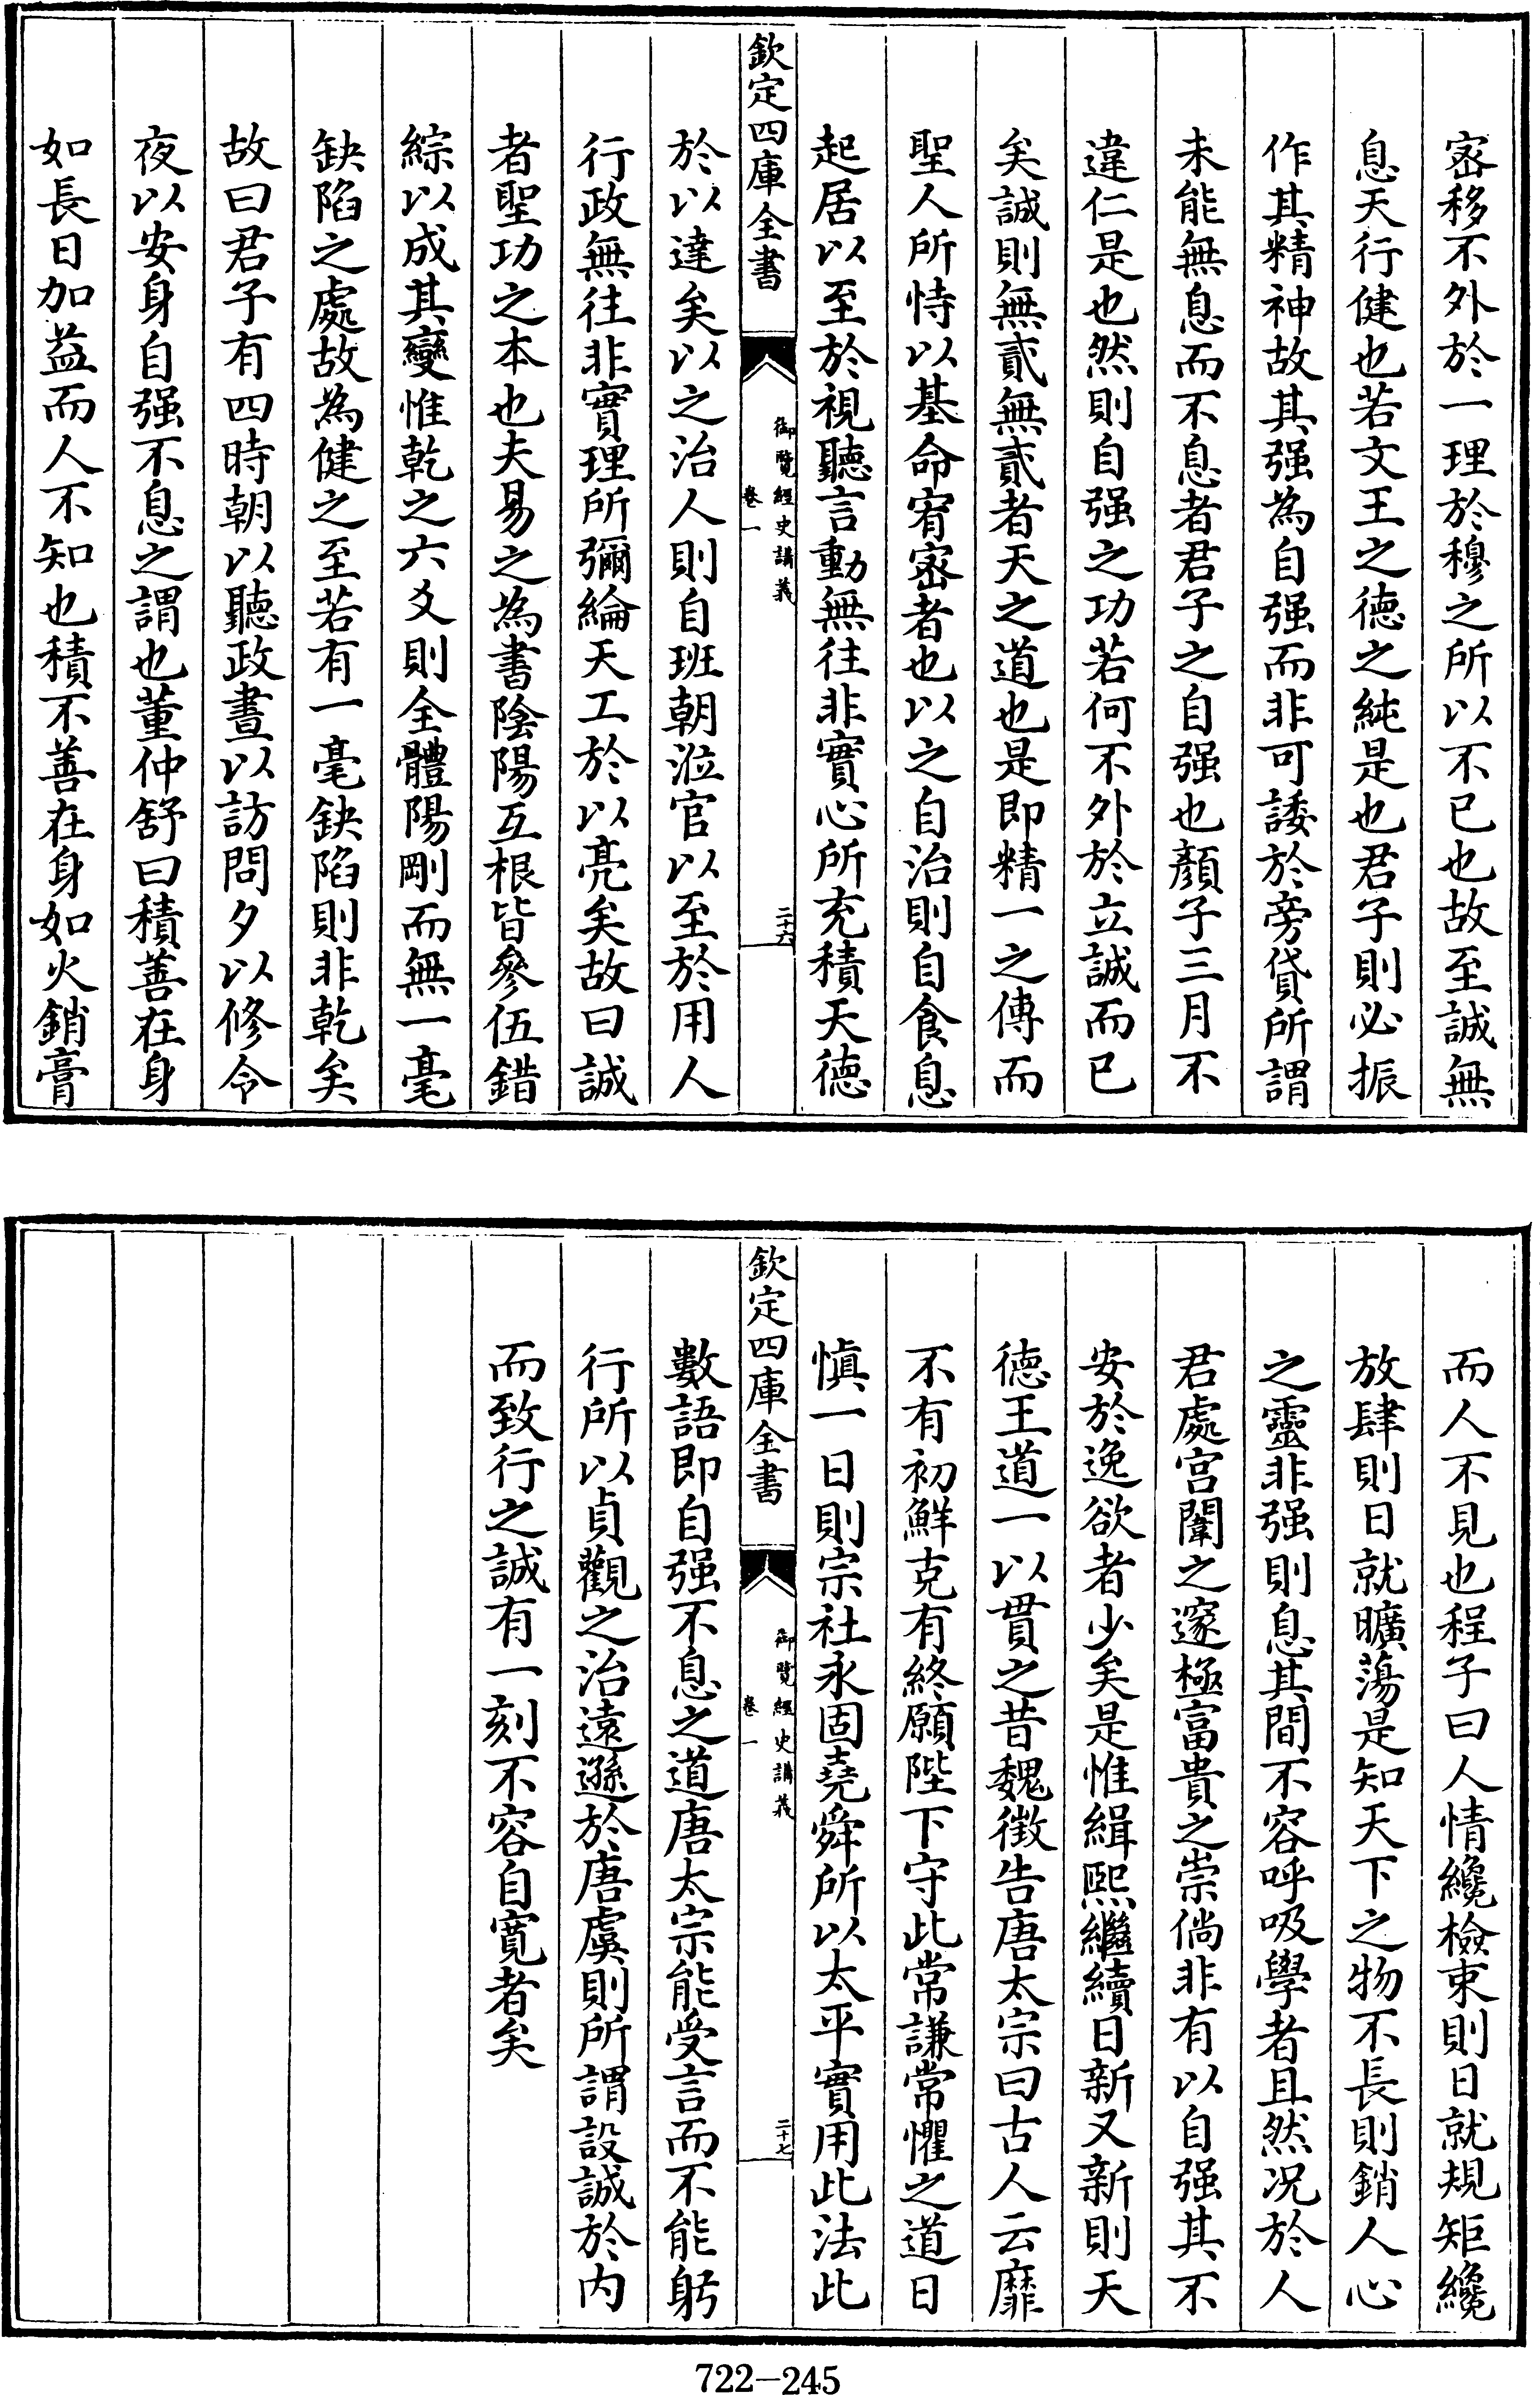 密移不外於一理於穆之所以不已也故至誠無
息天行健也若文王之德之純是也君子則必振
作其精神故其强為自强而非可諉於旁貸所謂
未能無息而不息者君子之自强也顏子三月不
違仁是也然則自强之功若何不外於立誠而已
矣誠則無貳無貳者天之道也是即精一之傳而
聖人所恃以基命宥密者也以之自治則自食息
起居以至於視聽言動無往非實心所充積天德
欽定四庫全書
御覽經史講義
卷一
二十六
於以達矣以之治人則自班朝涖官以至於用人
行政無往非實理所彌綸天工於以亮矣故曰誠
者聖功之本也夫易之為書陰陽互根皆參伍錯
綜以成其變惟乾之六爻則全體陽剛而無一毫
缺陷之處故為健之至若有一毫缺陷則非乾矣
故曰君子有四時朝以聽政晝以訪問夕以修令
夜以安身自强不息之謂也董仲舒曰積善在身
如長日加益而人不知也積不善在身如火銷膏
而人不見也程子曰人情纔檢束則日就規矩纔
放肆則日就曠蕩是知天下之物不長則銷人心
之靈非强則息其間不容呼吸學者且然况於人
君處宫闈之邃極富貴之崇倘非有以自强其不
安於逸欲者少矣是惟緝熙繼續日新又新則天
德王道一以貫之昔魏徵告唐太宗曰古人云靡
不有初鮮克有終願陛下守此常謙常懼之道日
慎一日則宗社永固堯舜所以太平實用此法此
欽定四庫全書
御覽經史講義
卷一
二十七
數語即自强不息之道唐太宗能受言而不能躬
行所以貞觀之治遠遜於唐虞則所謂設誠於内
而致行之誠有一刻不容自寛者矣
722-245